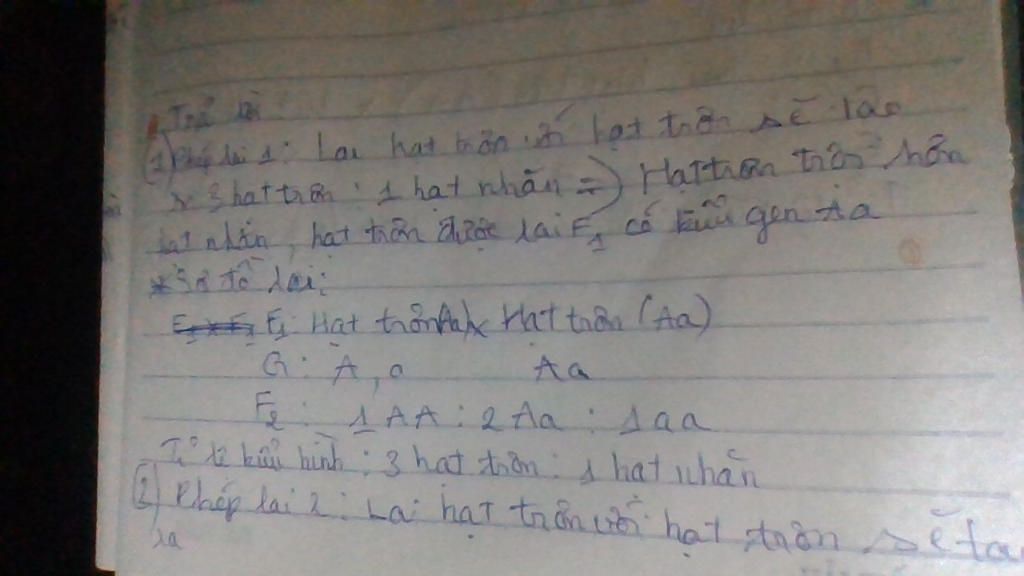 Trả lời
(1) Phép lai 1: Lai hạt trơn với hạt trơn sẽ tạo
ra 3 hạt trơn : 1 hạt nhăn => Hạt trơn trội hơn
hạt nhăn, hạt trơn được lai F1 có kiểu gen Aa
*Sơ đồ lai:
F1: Hạt trơn(Aa)x Hạt trơn (Aa)
G: A, a Aa
F2: 1AA : 2Aa : 1aa
Tỉ lệ kiểu hình : 3 hạt trơn : 1 hạt nhăn
(2) Phép lai 2: Lai hạt trơn với hạt trơn sẽ tạ
ra